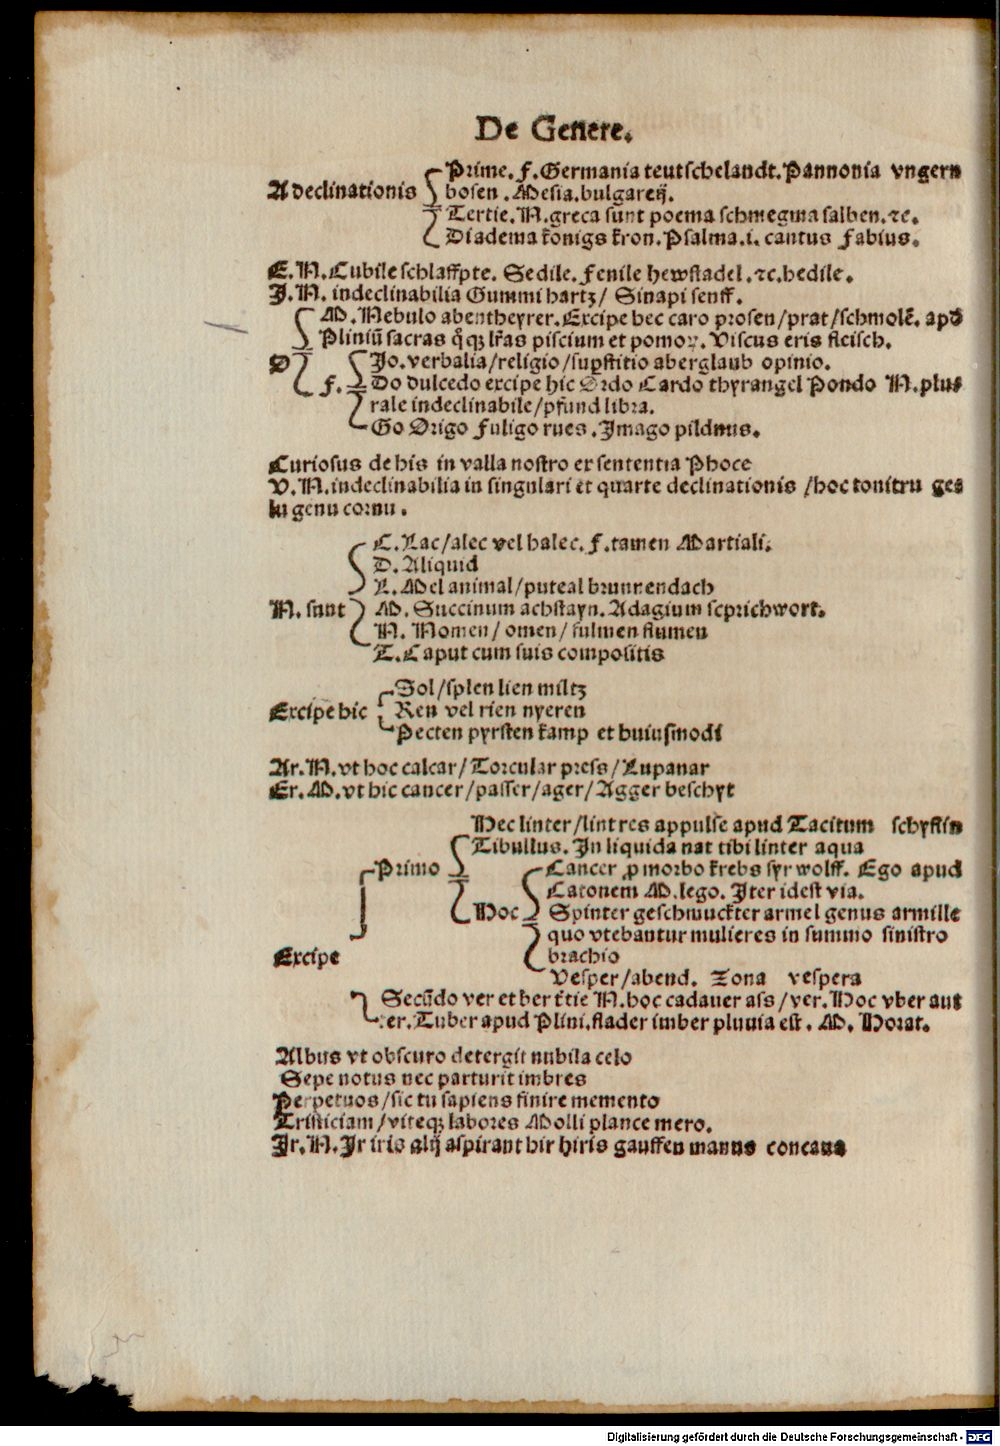 De Genere.
Prime. F. Germania teutschelandt. Pannonia vngern
A declinationis bosen. Mesia. bulgareij.
Tertie. N. greca sunt poema schmegma salben. ⁊c.
Diadema konigs kron. Psalma. i. cantus Fabius.
E. N. Cubile schlaffpte. Sedile. Fenile hewstadel. ⁊c. hedile.
I. N. indeclinabilia Gummi hartz/ Sinapi senff.
M. Nebulo abentheyrer. Excipe hec caro prosen/prat/schmolē. apd
Pliniū sacras qͣꝫ lr̄as piscium et pomoꝝ. Viscus eris fleisch.
O Io. verbalia/religio/suꝑstitio aberglaub opinio.
F. Do dulcedo excipe hic Ordo Cardo thyrangel Pondo N. plus
rale indeclinabile/pfund libra.
Go Origo Fuligo rues. Imago pildnus.
Curiosus de his in valla nostro ex sententia Phoce
V. N. indeclinabilia in singulari et quarte declinationis /hoc tonitru ges
lu genu cornu.
C. Lac/alec vel halec. F. tamen Martiali.
D. Aliquid
L. Mel animal/puteal brunnendach
N. sunt M. Succinum achstayn. Adagium sprichwort.
N. Nomen/ omen/ fulmen flumen
T. Caput cum suis compositis
Sol/splen lien miltz
Excipe hic Ren vel rien nyeren
Pecten pyrsten kamp et huiusmodi
Ar. N. vt hoc calcar/ Torcular press/ Lupanar
Er. M. vt hic cancer/passer/ager/Agger beschyt
Hec linter/lintres appulse apud Tacitum schyflin
Tibullus. In liquida nat tibi linter aqua
Primo Cancer ꝓ morbo krebs syr wolff. Ego apud
Catonem M. lego. Iter idest via.
Hoc Spinter geschmuckter armel genus armille
quo vtebantur mulieres in summo sinistro
Excipe brachio
Vesper/abend. Zona vespera
Secūdo ver et ber t̄tie N. hoc cadauer ass/ver. Hoc vber aut
er. Tuber apud Plini. flader imber pluuia est. M. Horat.
Albus vt obscuro detergit nubila celo
Sepe notus nec parturit imbres
Perpetuos/sic tu sapiens finire memento
Tristiciam/viteqꝫ labores Molli plance mero.
Ir. N. Ir iris alij aspirant hir hiris gauffen manus concaua
Digitalisierung gefördert durch die Deutsche Forschungsgemeinschaft - DFG